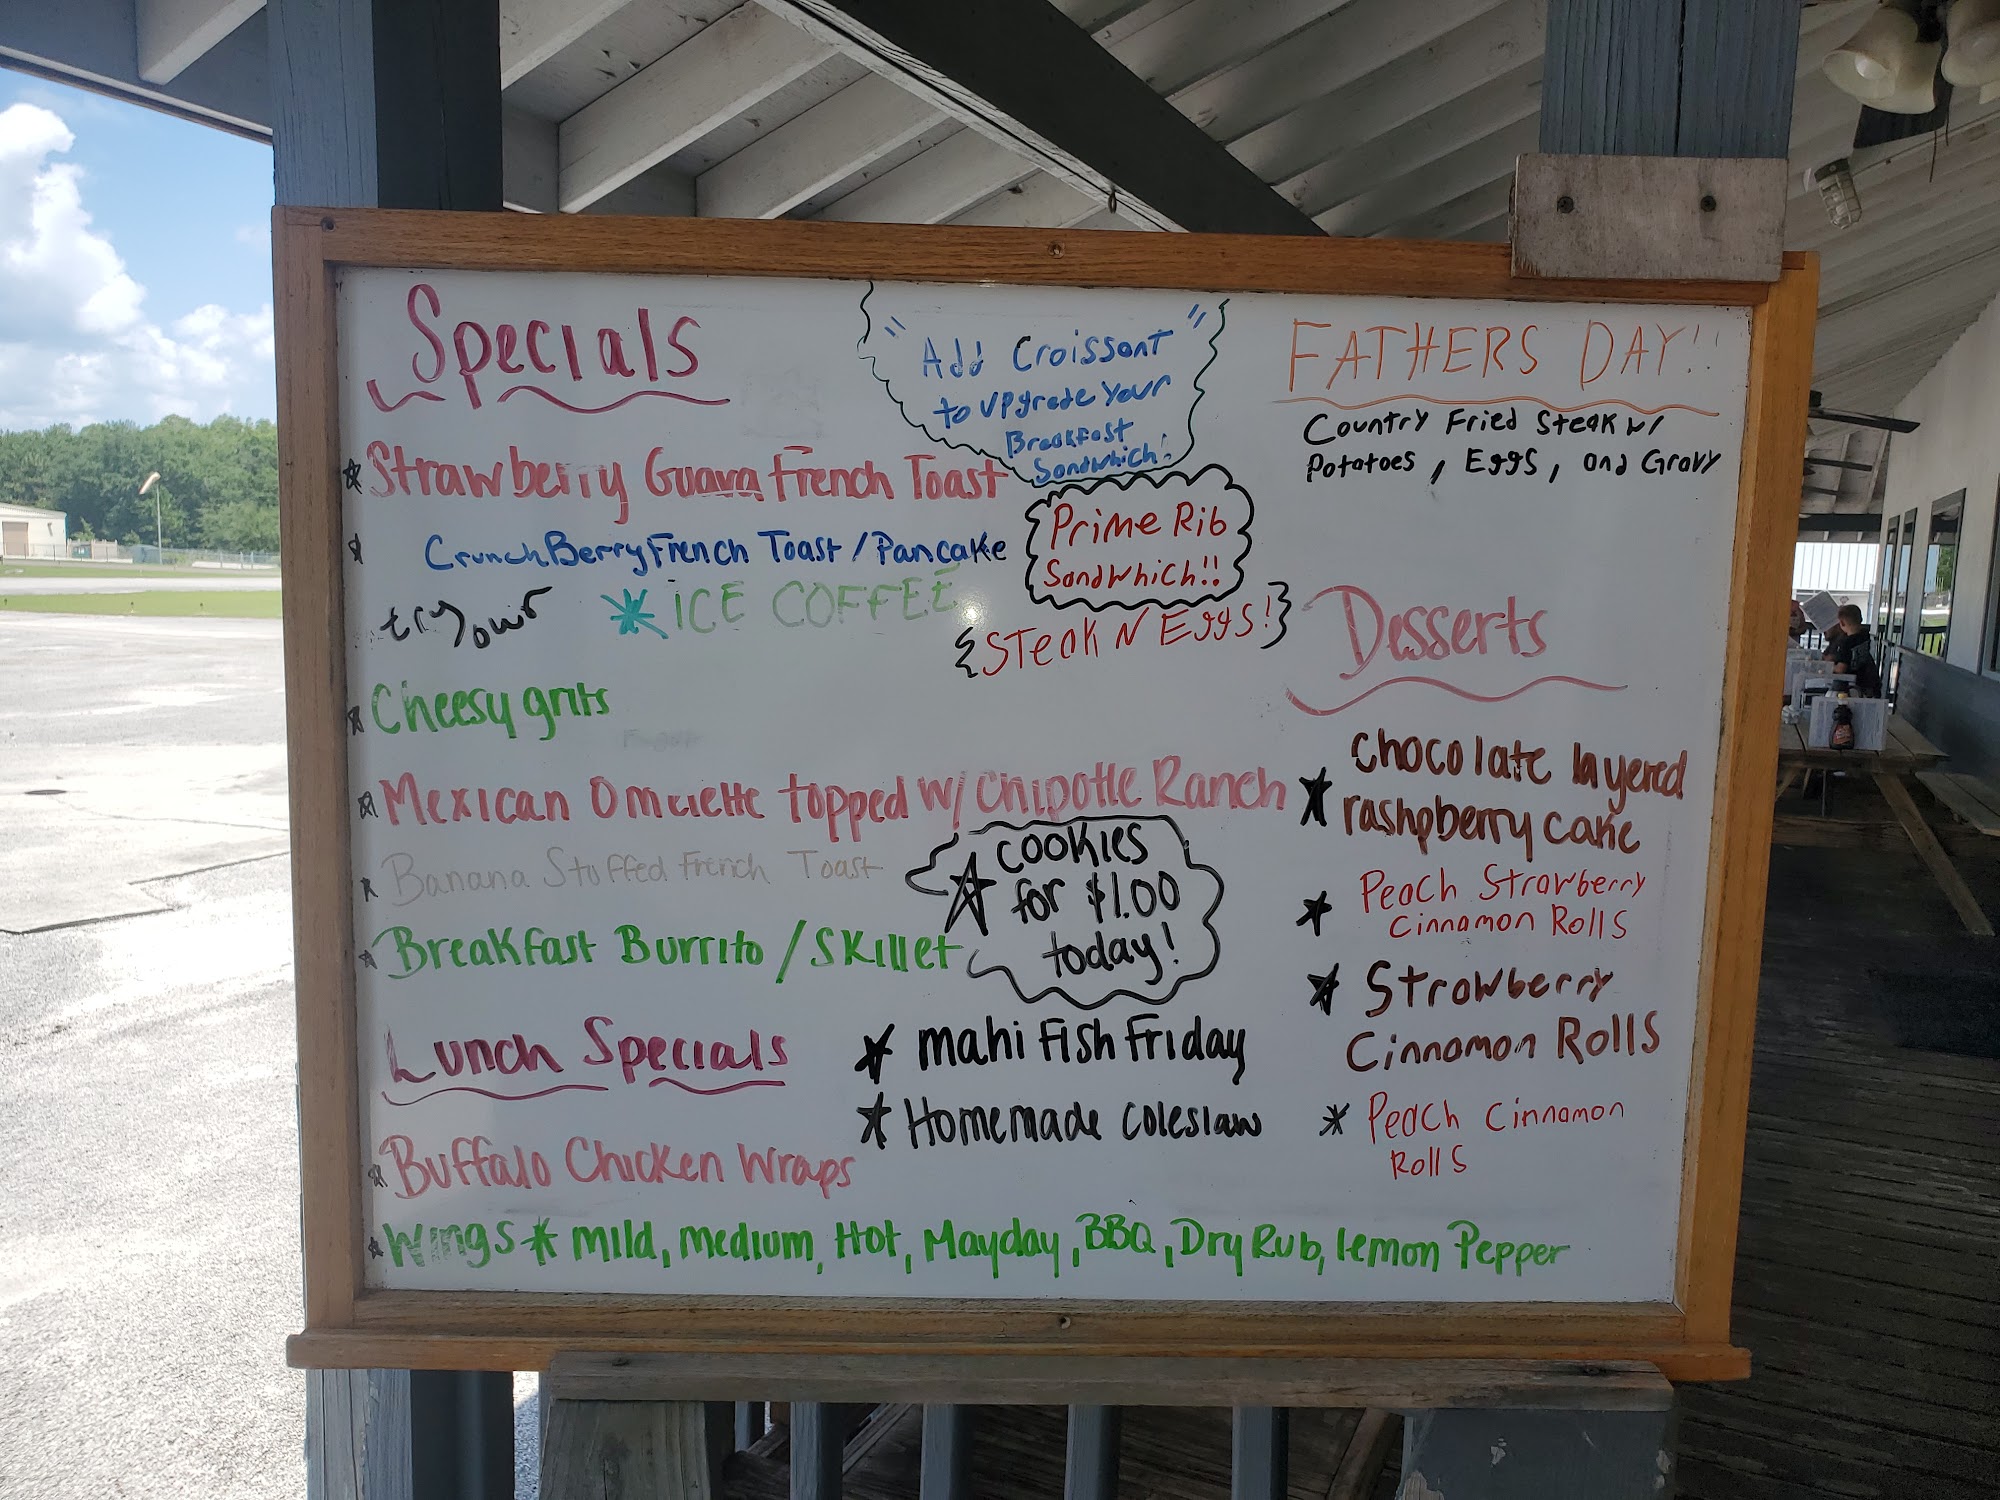 Specials
"Add Croissant
to upgrade your
Breakfast
Sandwhich!"
FATHERS DAY!!
Country Fried Steak w/
Potatoes, Eggs, and Gravy
Strawberry Guava French Toast
CrunchBerry French Toast / Pancake
Prime Rib
Sandwhich!!
try our
ICE COFFEE
{Steak N Eggs!}
Cheesy grits
Mexican Omelette topped w/ Chipotle Ranch
Banana Stuffed French Toast
Breakfast Burrito / Skillet
cookies
for $1.00
today!
Desserts
chocolate layered
rashpberry cake
Peach Strawberry
Cinnamon Rolls
Strawberry
Cinnamon Rolls
Peach Cinnamon
Rolls
Lunch Specials
mahi Fish Friday
Homemade coleslaw
Buffalo Chicken Wraps
Wings * mild, medium, Hot, Mayday, BBQ, Dry Rub, lemon Pepper